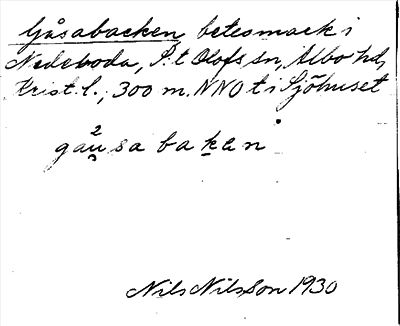 Gåsabacken, betesmark i
Nedeboda, S:t Olofs sn, Albo hd,
Krist. l., 300 m. NNO t i Sjöhuset
gau²sa baken
Nils Nilsson 1930